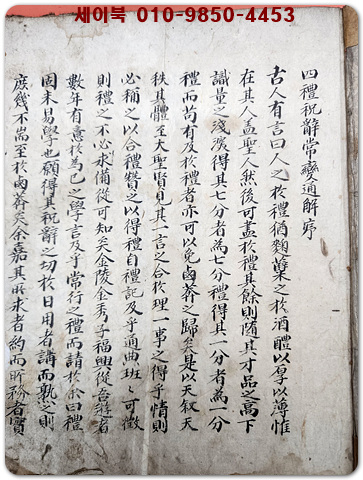 세이북 010-9850-4453
四禮祝辭常變通解序
古人有言曰人之於禮猶麴蘖之於酒醴以厚以薄惟
在其人盖聖人然後可盡於禮其餘則隨其才品之高下
識量之淺深得其七分者為七分禮得其一分者為一分
禮而苟有及於禮者亦可以免鹵莽之歸矣是以天叙天
秩其體至大聖賢見其一言之合於理一事之得乎情則
必稱之以合禮贊之以得禮自禮記及乎通典班〻可徵
則禮之不必求備從可知矣金陵金秀子福興從吾遊者
數年有意於為己之學言及乎常行之禮而請於余曰禮
固未易學也願得其祝辭之切於日用者講而熟之則
庶幾不啻至於鹵莽矣余嘉其所求者約而所務者實